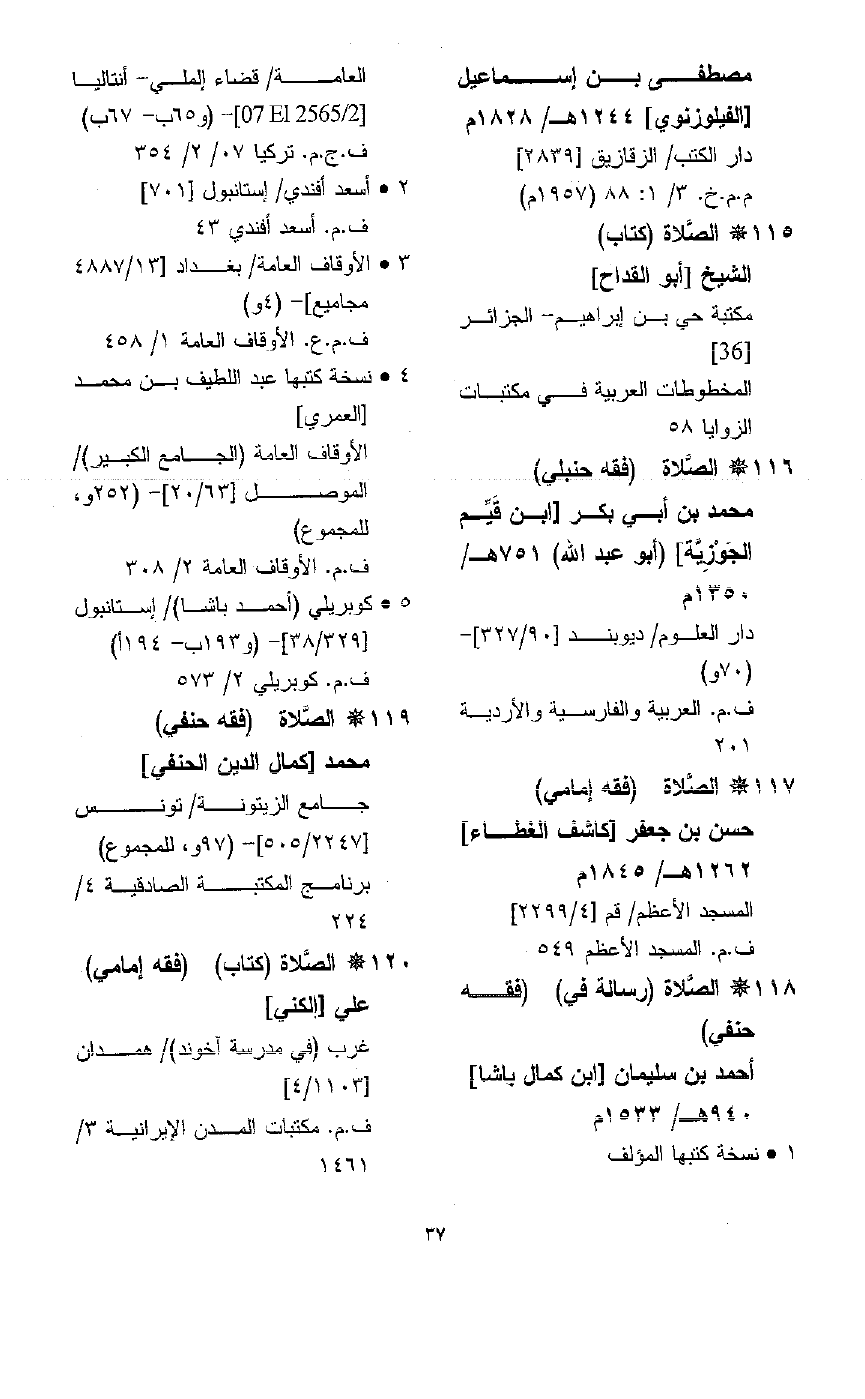 مصطفى بن إسماعيل
[الفيلوزنوي] ١٢٤٤هـ/ ١٨٢٨م
دار الكتب/ الزقازيق [٢٨٣٩]
م.م.خ. ٣/ ١: ٨٨ (١٩٥٧م)
١١٥ ❊ الصَّلاة (كتاب)
الشيخ [أبو القداح]
مكتبة حي بن إبراهيم- الجزائر
[36]
المخطوطات العربية في مكتبات
الزوايا ٥٨
١١٦ ❊ الصَّلاة (فقه حنبلي)
محمد بن أبي بكر [ابن قَيِّم
الجَوْزِيَّة] (أبو عبد الله) ٧٥١هـ/
١٣٥٠م
دار العلوم/ ديوبند [٣٢٧/٩٠]-
(٧٠و)
ف.م. العربية والفارسية والأردية
٢٠١
١١٧ ❊ الصَّلاة (فقه إمامي)
حسن بن جعفر [كاشف الغطاء]
١٢٦٢هـ/ ١٨٤٥م
المسجد الأعظم/ قم [٢٢٩٩/٤]
ف.م. المسجد الأعظم ٥٤٩
١١٨ ❊ الصَّلاة (رسالة في) (فقه
حنفي)
أحمد بن سليمان [ابن كمال باشا]
٩٤٠هـ/ ١٥٣٣م
١ • نسخة كتبها المؤلف
العامة/ قضاء إلملي- أنتاليا
[07 El 2565/2]- (و٦٥ب- ٦٧ب)
ف.ج.م. تركيا ٠٧/ ٢/ ٣٥٤
٢ • أسعد أفندي/ إستانبول [٧٠١]
ف.م. أسعد أفندي ٤٣
٣ • الأوقاف العامة/ بغداد [٤٨٨٧/١٣
مجاميع]- (٤و)
ف.م.ع. الأوقاف العامة ١/ ٤٥٨
٤ • نسخة كتبها عبد اللطيف بن محمد
[العمري]
الأوقاف العامة (الجامع الكبير)/
الموصل [٢٠/٦٣]- (٢٥٢و،
للمجموع)
ف.م. الأوقاف العامة ٢/ ٣٠٨
٥ • كوبريلي (أحمد باشا)/ إستانبول
[٣٨/٣٢٩]- (و١٩٣ب- ١٩٤أ)
ف.م. كوبريلي ٢/ ٥٧٣
١١٩ ❊ الصَّلاة (فقه حنفي)
محمد [كمال الدين الحنفي]
جامع الزيتونة/ تونس
[٥٠٥/٢٢٤٧]- (٩٧و، للمجموع)
برنامج المكتبة الصادقية ٤/
٢٢٤
١٢٠ ❊ الصَّلاة (كتاب) (فقه إمامي)
علي [الكني]
غرب (في مدرسة آخوند)/ همدان
[٤/١١٠٣]
ف.م. مكتبات المدن الإيرانية ٣/
١٤٦١
٣٧